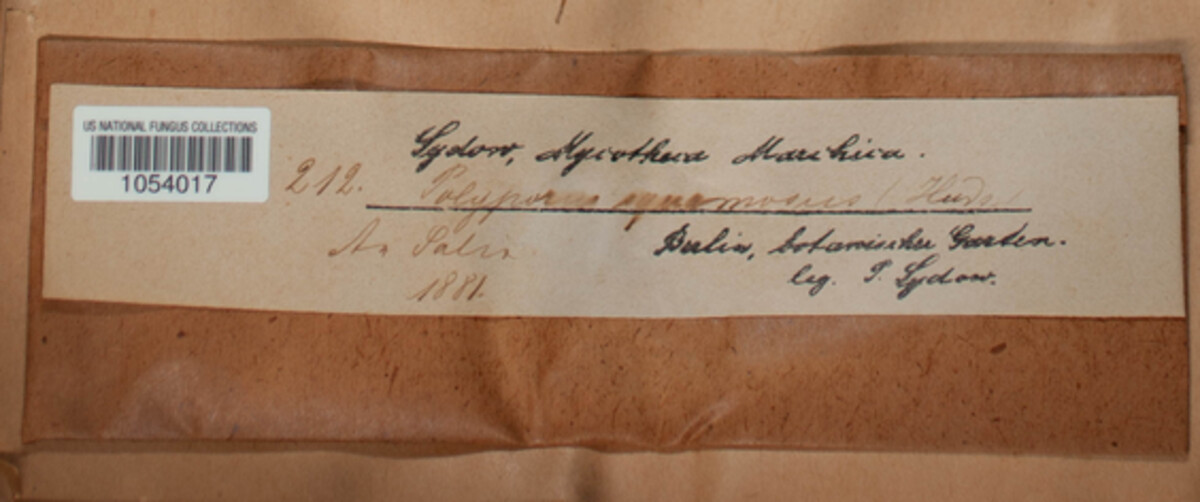 US NATIONAL FUNGUS COLLECTIONS
1054017
Sydow, Mycotheca Marchica.
212. Polyporus squamosus (Huds.)
An Salix
Berlin, botanischer Garten.
1881.
leg. P. Sydow.